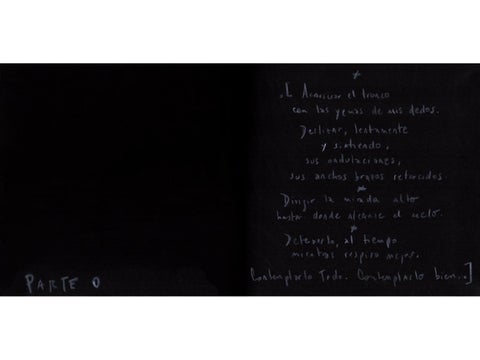 PARTE 0
*
[ Acariciar el tronco
con las yemas de mis dedos.
Deslizar, lentamente
y sintiendo,
sus ondulaciones,
sus anchos brazos retorcidos.
*
Dirigir la mirada alto
hasta donde alcance el cielo.
*
Detenerla, al tiempo
mientras respiro mejor.
Contemplarlo Todo. Contemplarlo bien...]